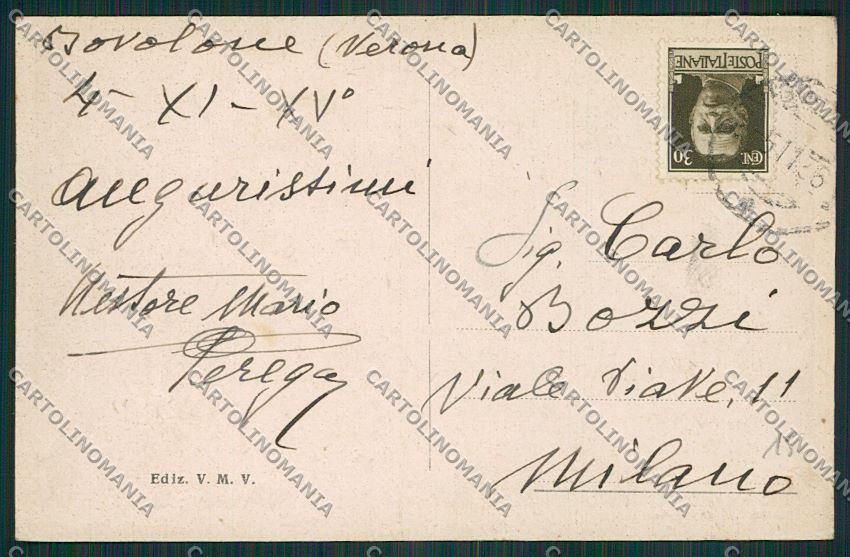 Bovolone (Verona)
4 - XI - XV°
Augurissimi
Nestore Mario
Perega
Ediz. V. M. V.
POSTE ITALIANE
CENT. 30
5.11.36
Sig. Carlo
Bozzi
Viale Piave, 11
Milano
15
CARTOLINOMANIA